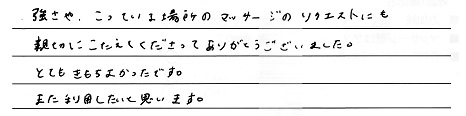 強さや、こっている場所のマッサージのリクエストにも
親切にこたえてくださってありがとうございました。
とてもきもちよかったです。
また利用したいと思います。